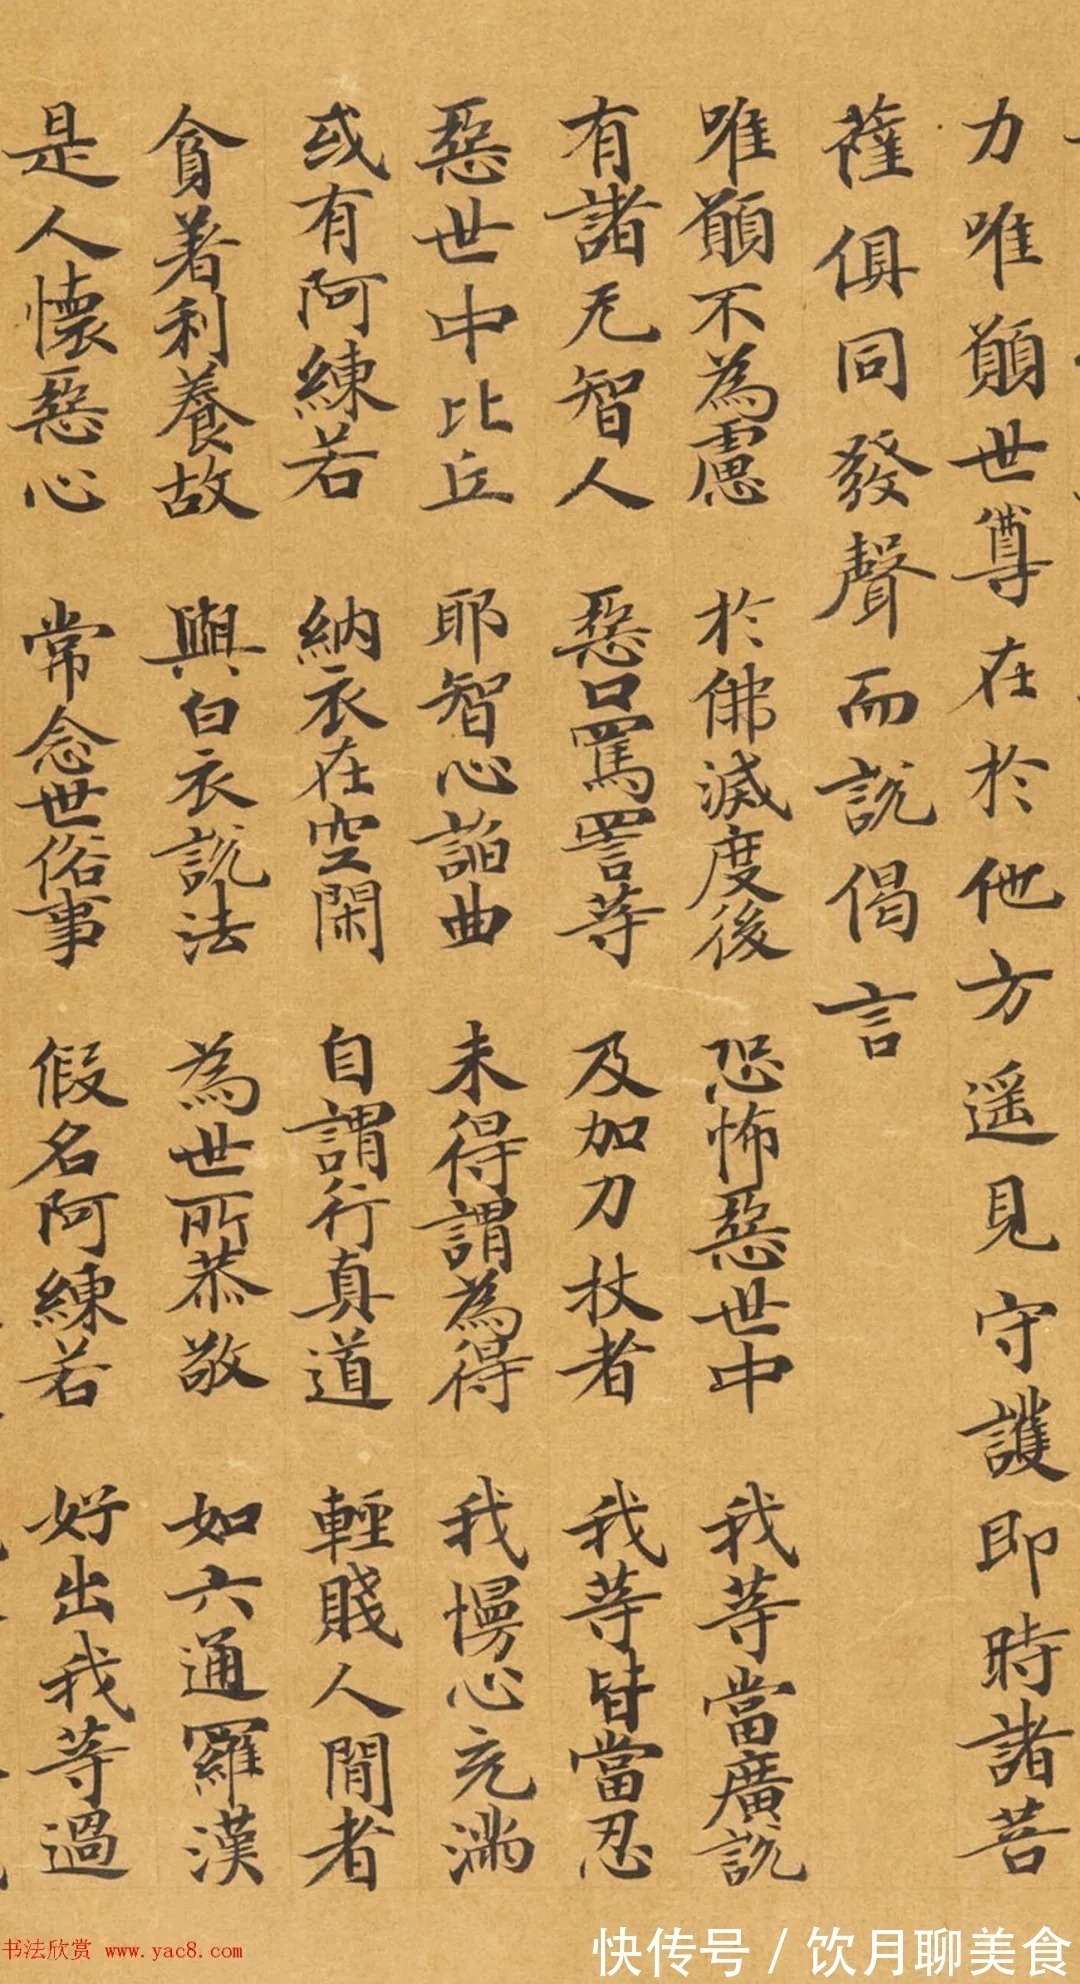 力唯願世尊在於他方遥見守護即時諸菩
薩俱同發聲而説偈言
唯願不為慮 於佛滅度後 恐怖惡世中 我等當廣説
有諸无智人 惡口罵詈等 及加刀杖者 我等皆當忍
惡世中比丘 耶智心諂曲 未得謂為得 我慢心充滿
或有阿練若 納衣在空閑 自謂行真道 輕賤人間者
貪著利養故 與白衣説法 為世所恭敬 如六通羅漢
是人懷惡心 常念世俗事 假名阿練若 好出我等過
书法欣赏 www.yac8.com
快传号/饮月聊美食